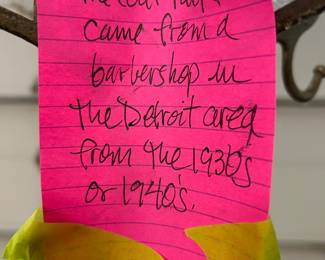 The coat rack
came from a
barbershop in
the Detroit area
from the 1930's
or 1940's.